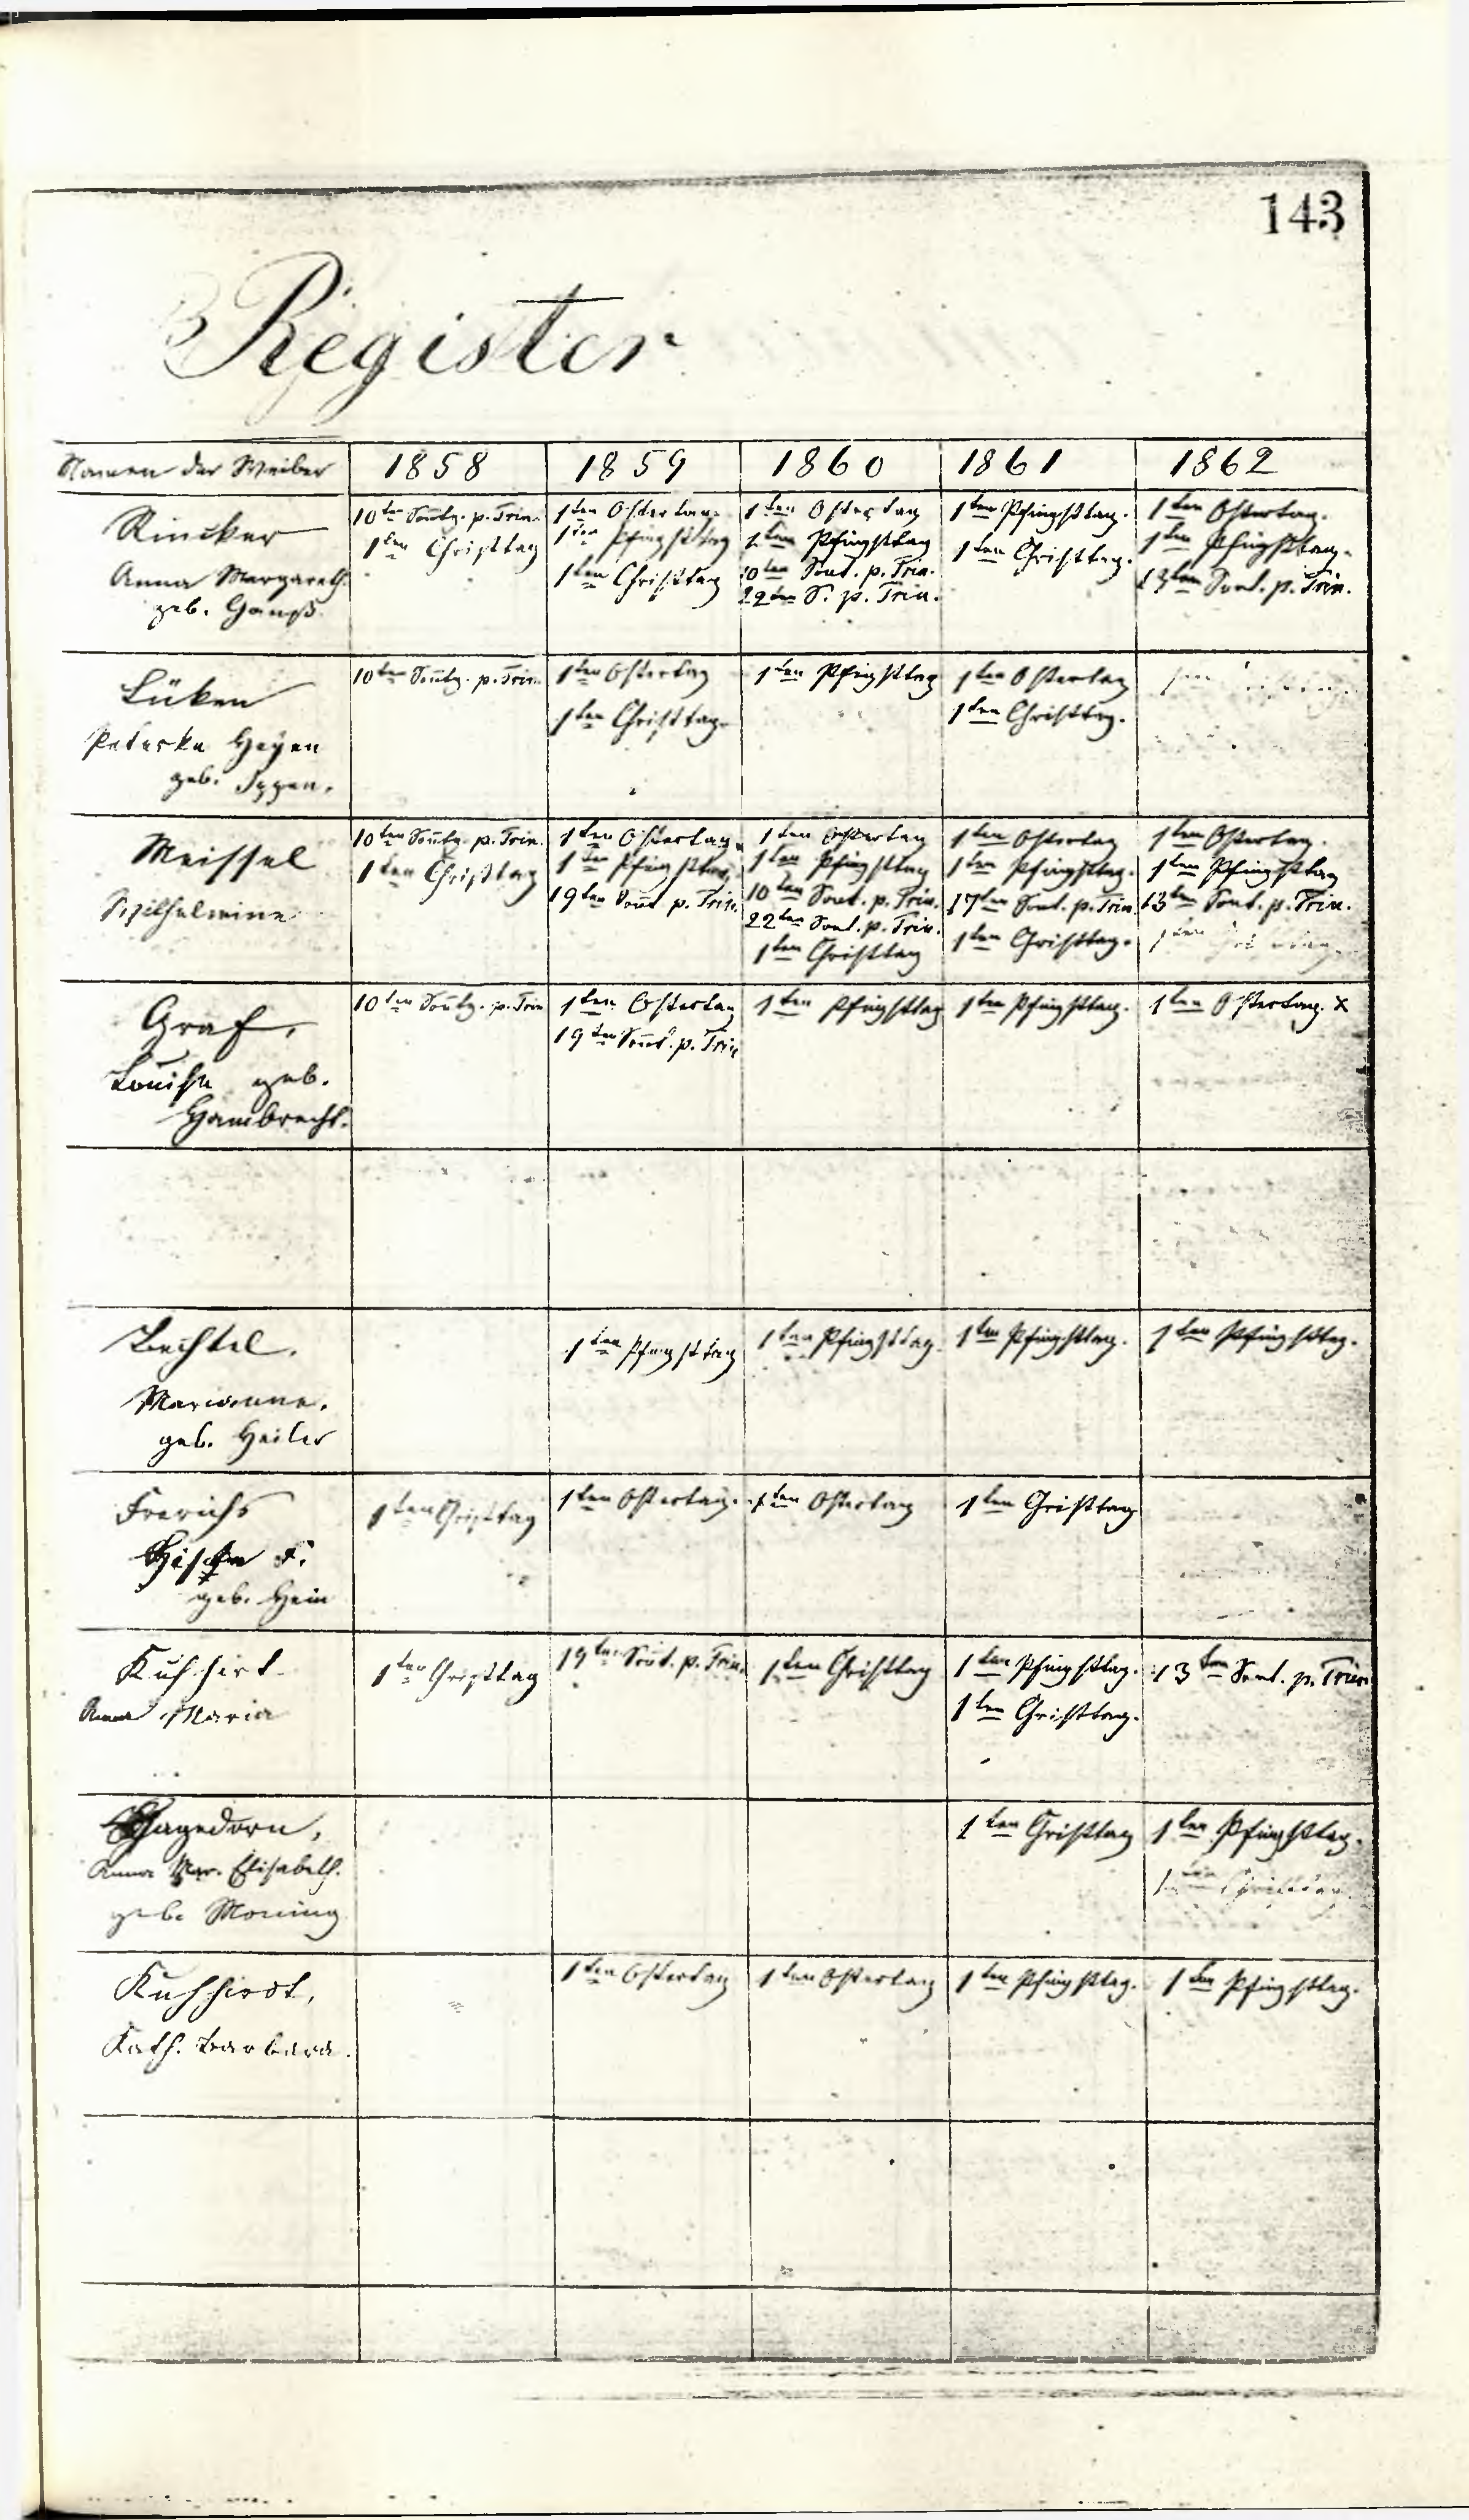 143
Register
Namen der Weiber 1858 1859 1860 1861 1862
Rincker
Anna Margareth
geb. Ganß
10ten Sontg. p. Trin.
1ten Christtag
1ten Ostertag
1ten Pfingsttag
1ten Christtag
1ten Ostertag
1ten Pfingsttag
10ten Sont. p. Trin.
22ten S. p. Trin.
1ten Pfingsttag.
1ten Christtag.
1ten Ostertag.
1ten Pfingsttag.
13ten Sont. p. Trin.
Lüken
Peterke Heyen
geb.
10ten Sontg. p. Trin.
1ten Ostertag
1ten Christtag.
1ten Pfingsttag
1ten Ostertag
1ten Christtag.
1ten
Meissel
Wilhelmine
10ten Sontg. p. Trin.
1ten Christtag
1ten Ostertag
1ten Pfingsttag
19ten Sont p. Trin.
1ten Ostertag
1ten Pfingsttag
10ten Sont. p. Trin.
22ten Sont. p. Trin.
1ten Christtag
1ten Ostertag
1ten Pfingsttag.
17ten Sont. p. Trin.
1ten Christtag.
1ten Ostertag.
1ten Pfingsttag
13ten Sont. p. Trin.
1ten
Graf,
Louise geb.
Hambrecht.
10ten Sontg. p. Trin
1ten Ostertag
19ten Sont. p. Trin
1ten Pfingsttag
1ten Pfingsttag.
1ten Ostertag. x
Bechtel.
Marianne.
geb. Heiler
1ten Pfingsttag
1ten Pfingsttag.
1ten Pfingsttag.
1ten Pfingsttag.
Frerichs
F.
geb. Hein
1ten Christtag
1ten Ostertag.
1ten Ostertag
1ten Christtag
Kuhhirt
Anna Maria
1ten Christtag
19ten Sont. p. Trin.
1ten Christtag
1ten Pfingsttag.
1ten Christtag.
13ten Sont. p. Trin
Hagedorn,
Anna Mar. Elisabeth.
geb. Moning
1ten Christtag
1ten Pfingsttag.
1ten Christtag
Kuhhirdt,
Kath. Barbara.
1ten Ostertag
1ten Ostertag
1ten Pfingsttag.
1ten Pfingsttag.